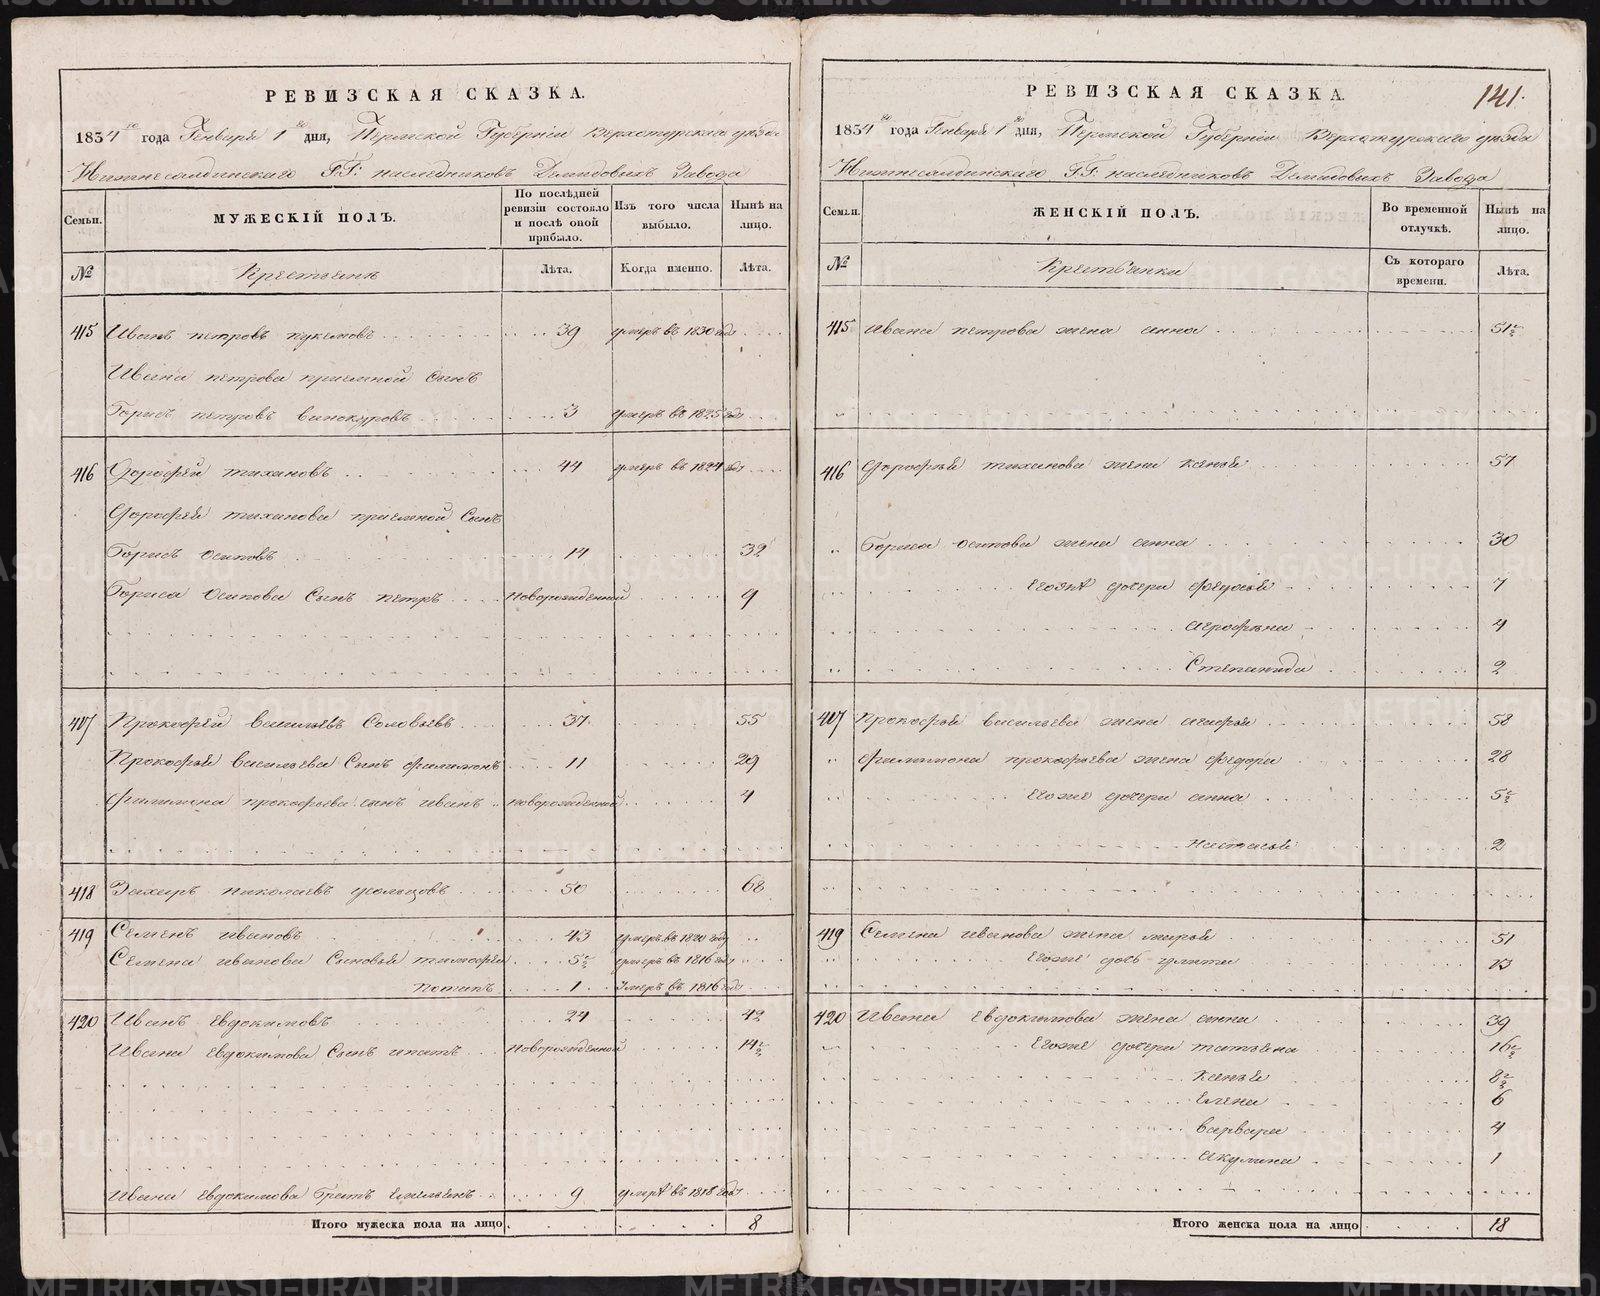 РЕВИЗСКАЯ СКАЗКА.
1834го года Генваря 1го дня, Пермской Губернiи Верхотурскаго уѣзда
Нижнесалдинскаго Г.Г: наслѣдниковъ Демидовыхъ Завода
Семьи.
МУЖЕСКІЙ ПОЛЪ.
По послѣдней ревизіи состояло и послѣ оной прибыло.
Изъ того числа выбыло.
Нынѣ на лицо.
№
Крестьянъ
Лѣта.
Когда именно.
Лѣта.
415 Иванъ петровъ 39 умеръ въ 1830 годѣ
Ивана петрова приемной Сынъ
Борисъ петровъ винокуровъ 3 умеръ въ 1825 годѣ
416 Дорофей тихановъ 44 умеръ въ 1824 годѣ
Дорофея тиханова приемной Сынъ
Борисъ осиповъ 14 32
Бориса Осипова Сынъ петръ новорожденной 9
407 Прокофей васильевъ Соловьевъ 37 55
Прокофья васильева Сынъ филимонъ 11 29
филимона прокофьева сынъ иванъ новорожденной 4
418 Захаръ николаевъ усольцовъ 50 68
419 Семенъ ивановъ 43 умеръ въ 1820 году
Семена иванова Сыновья тимофей 5½ умеръ въ 1816 годѣ
потапъ 1 Умеръ въ 1816 годѣ
420 Иванъ евдокимовъ 24 42
Ивана евдокимова Сынъ ипатъ новорожденной 14½
Ивана евдокимова Братъ емельянъ 9 умръ въ 1818 годѣ
Итого мужеска пола на лицо 8
141.
РЕВИЗСКАЯ СКАЗКА.
1834го года Генваря 1го дня, Пермской Губернiи Верхотурскаго уѣзда
Нижнесалдинскаго Г.Г: наслѣдниковъ Демидовыхъ Завода
Семьи.
ЖЕНСКІЙ ПОЛЪ.
Во временной отлучкѣ.
Нынѣ на лицо.
№
Крестьянки
Съ котораго времени.
Лѣта.
415 Ивана петрова жена анна 51½
416 Дорофья тиханова жена Ксенья 57
Бориса осипова жена анна 30
Егожъ дочери федосья 7
агрофена 4
Степанида 2
407 Прокофья васильева жена агафья 58
филимона прокофьева жена федора 28
Егоже дочери анна 5½
настасья 2
419 Семена иванова жена марья 51
Егоже дочь улита 13
420 Ивана Евдокимова жена анна 39
Егоже дочери татьяна 16½
Ксенья 8½
Елена 6
варвара 4
акулина 1
Итого женска пола на лицо 18
METRIKI.GASO-URAL.RU